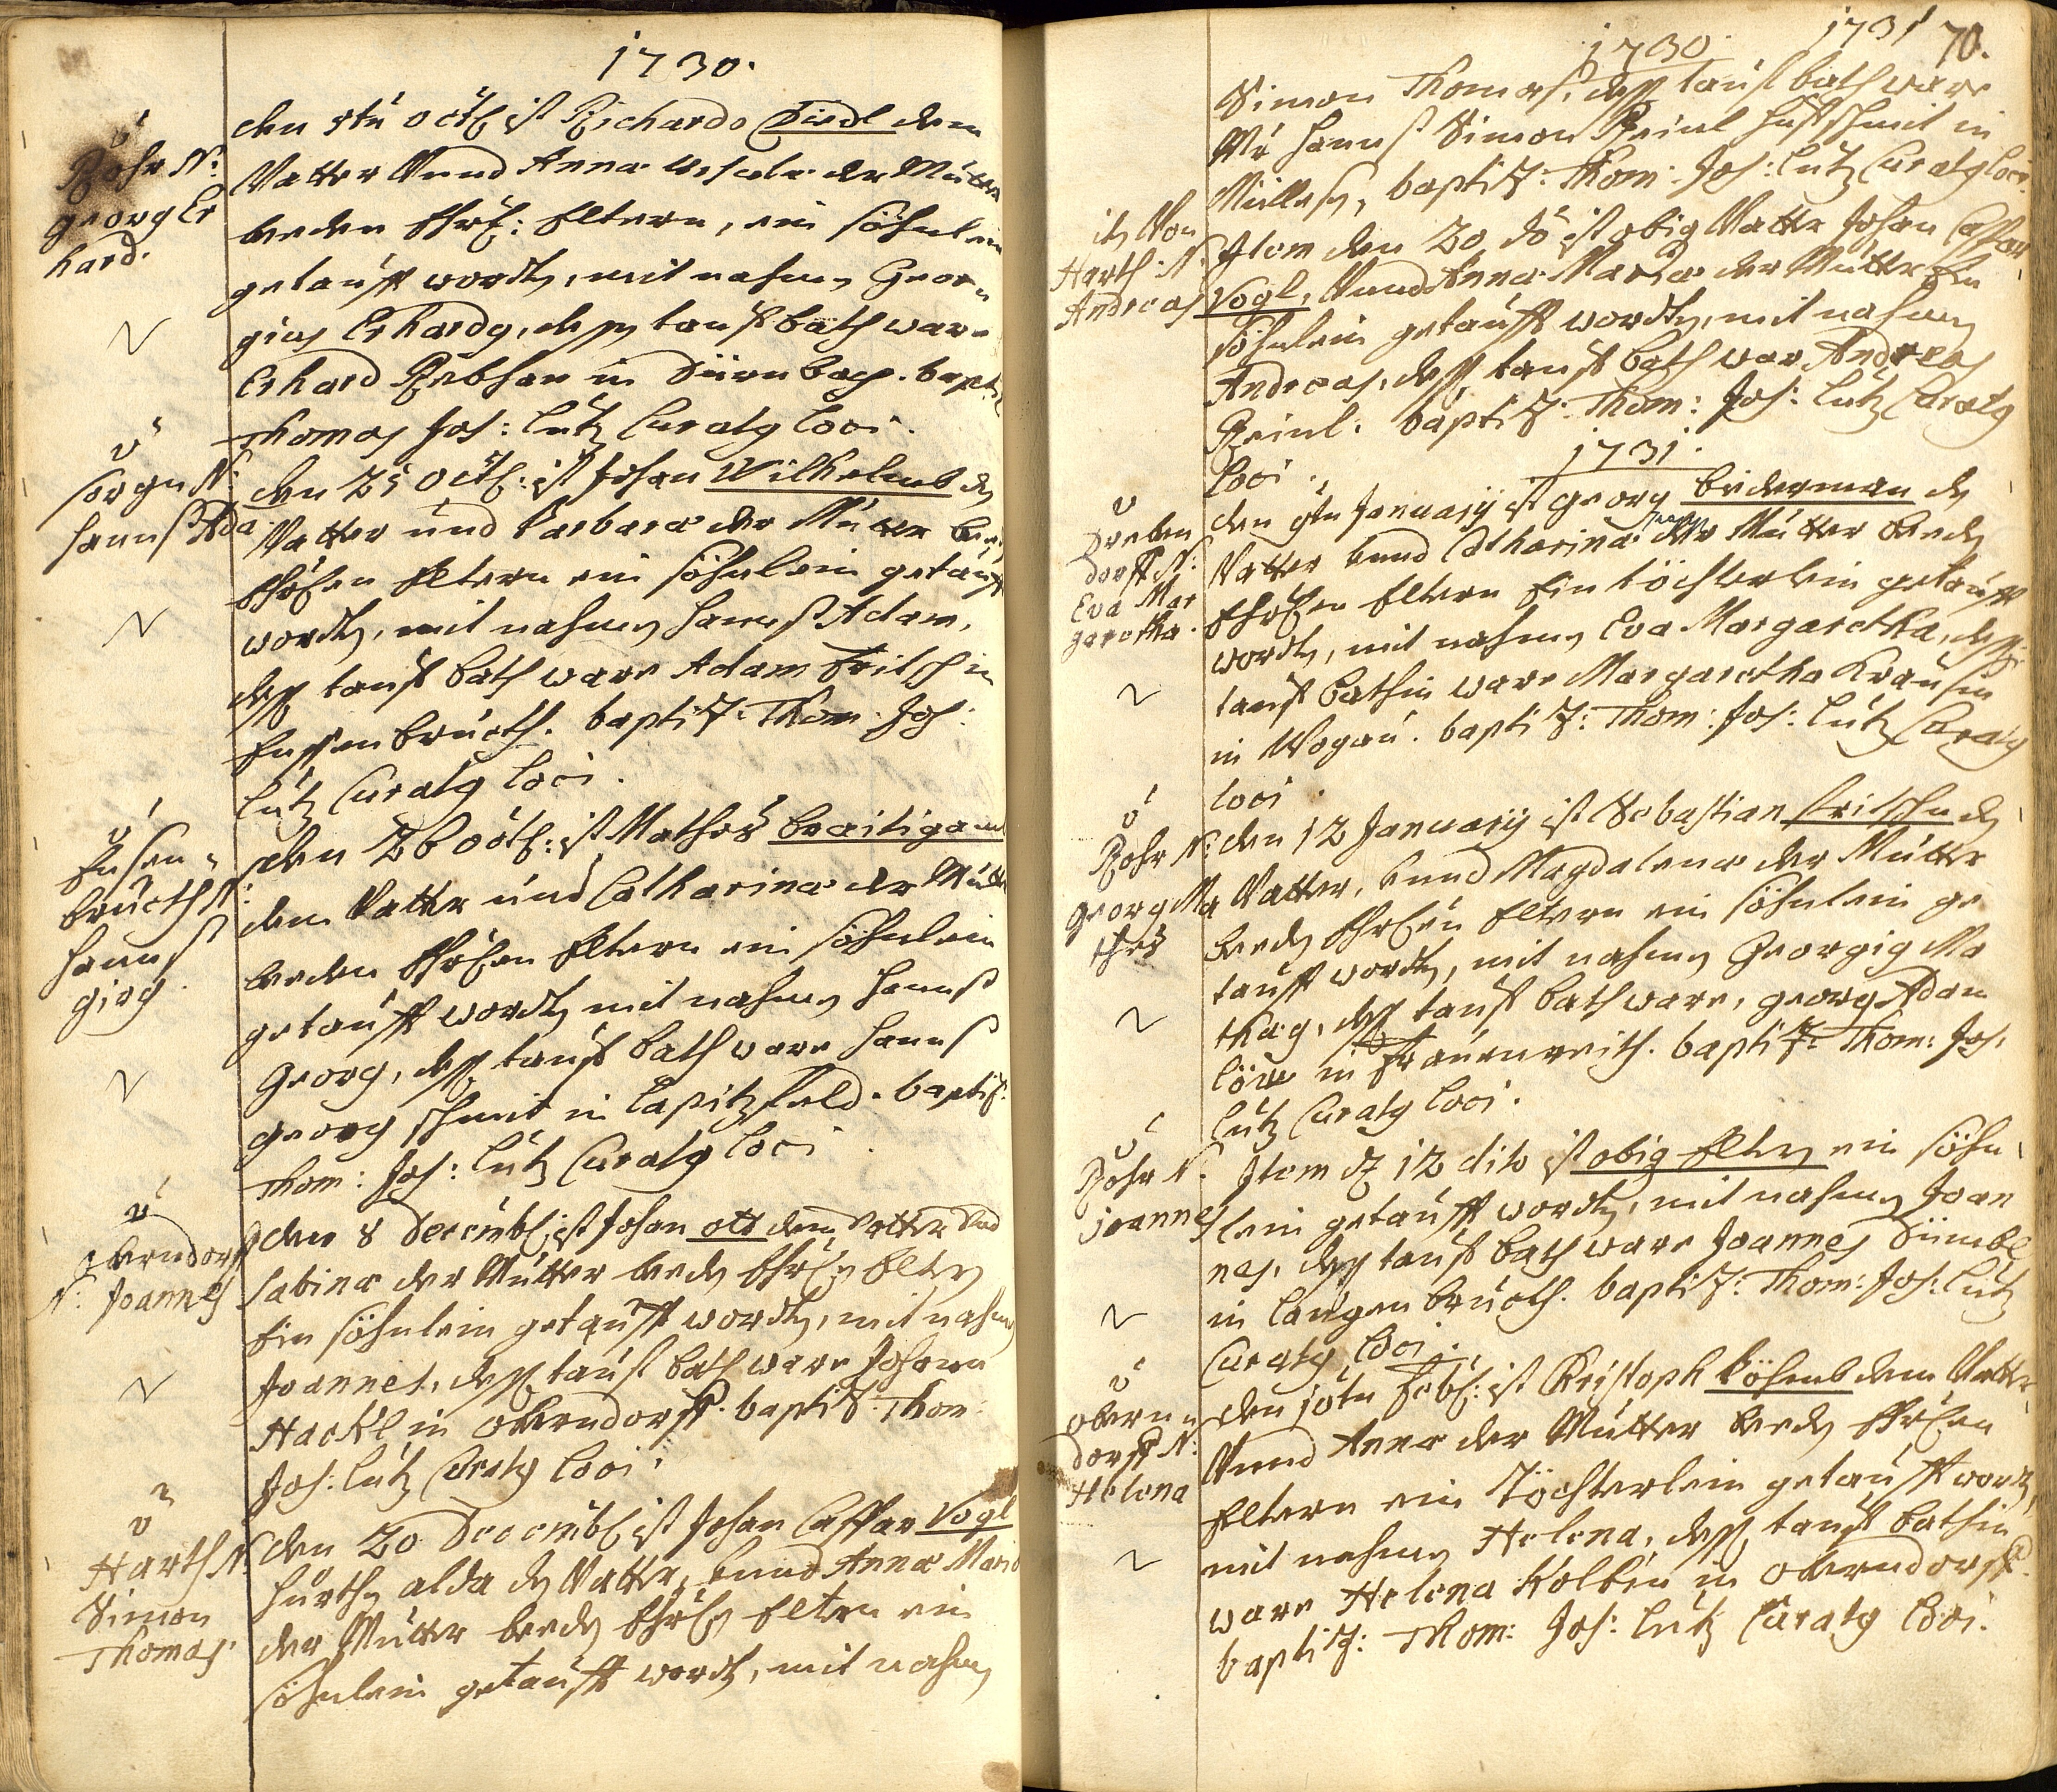 1730.
Rohr N:
georg Er
hard.
den 5tn octb: ist Richardo Riedl dem
Vatter Vnnd Anna Ursula der Mutter
beeden Ehrl: Eltern, ein söhnlein
getaufft wordten, mit nahmen Geor
gius Erhardus, dessen tauf bath ware
Erhard Rebhan in Dürnbach. baptiz:
Thomas Jos: Lutz Curatus loci.
sorgen N:
hannß Ada
den 25 octb: ist Johan Wilhelmb den
Vatter und barbara der Mutter beed
Ehrlichen Eltern ein söhnlein getaufft
wordten, mit nahmen hannß Adam,
dessen tauf bath ware Adam Fritsch in
Enssenbruckh. baptiz: Thom: Jos:
Lutz Curatus loci.
Ensen-
bruckh N:
hannß
girg.
den 26 octb: ist Matheß breitigamb
dem Vatter und Catharina der Mutter
beeden Ehrlichen Eltern ein söhnlein
getaufft wordten mit nahmen hannß
Georg, dessen tauf bath ware hannß
georg schmit in Capitzfeld. baptiz:
Thom: Jos: Lutz Curatus loci.
oberndorff
N: Joannes
den 8 Decembr ist Johan ott dem Vatter Vnd
Sabina der Mutter beeden Ehrlichen Eltern
Ein söhnlein getaufft wordten, mit nahmen
Joannes, dessen tauf bath ware Johann
Hackl in oberndorff. baptiz: Thom:
Jos: Lutz Curatus loci.
Harth N.
Simon
Thomas.
den 20 Decembr ist Johan Casspar Vogl
hürthen alda den Vatter, Vnnd Anna Maria
der Mutter beeden Ehrlichen Eltern ein
söhnlein getaufft wordten, mit nahmen
1730. 1731 70.
Simon Thomas, dessen tauf bath ware
Mr hannß Simon Reinl hufschmit in
baptiz: Thom: Jos: Lutz Curatus loci.
Von
Harth N.
Andreas
Item den 20 do ist obig Vatter Johan Casspar
Vogl, Vnnd Anna Maria der Mutter Ein
söhnlein getaufft wordten, mit nahmen
Andreas, dessen tauf bath war Andreas
Reinl. baptiz: Thom: Jos: Lutz Curatus
loci.
1731.
dorff N:
Eva Mar
garetha.
den January ist georg biderman den
Vatter Vnnd Catharina der Mutter beeden
Ehrlichen Eltern Ein töchterlein getaufft
wordten, mit nahmen Eva Margaretha, dessen
tauf bathin ware Margaretha Krausin
in Wogau. baptiz: Thom: Jos: Lutz Curatus
loci.
Rohr N:
georg Ma
theß
den 12 January ist Sebastian Fritschn den
Vatter, Vnnd Magdalena der Mutter
beeden Ehrlichen Eltern ein söhnlein ge
taufft wordten, mit nahmen Georgius Ma
thæus, dessen tauf bath ware, georg Adam
löw in Frauenreith. baptiz: Thom: Jos:
Lutz Curatus loci.
Rohr N.
joannes
Item d 12 dito ist obig Eltern ein söhn
lein getaufft wordten, mit nahmen Joan
nes, dessen tauf bath ware Joannes Dümbl
in langenbruckh. baptiz: Thom: Jos: Lutz
Curatus loci.
obern
dorff N:
Helena
den 10tn Febr: ist Christoph köhmb dem Vatter
Vnnd Anna der Mutter beeden Ehrlichen
Eltern ein Töchterlein getaufft wordten,
mit nahmen Helena, dessen tauf bathin
ware Helena Kolbin in oberndorff.
baptiz: Thom: Jos: Lutz Curatus loci.